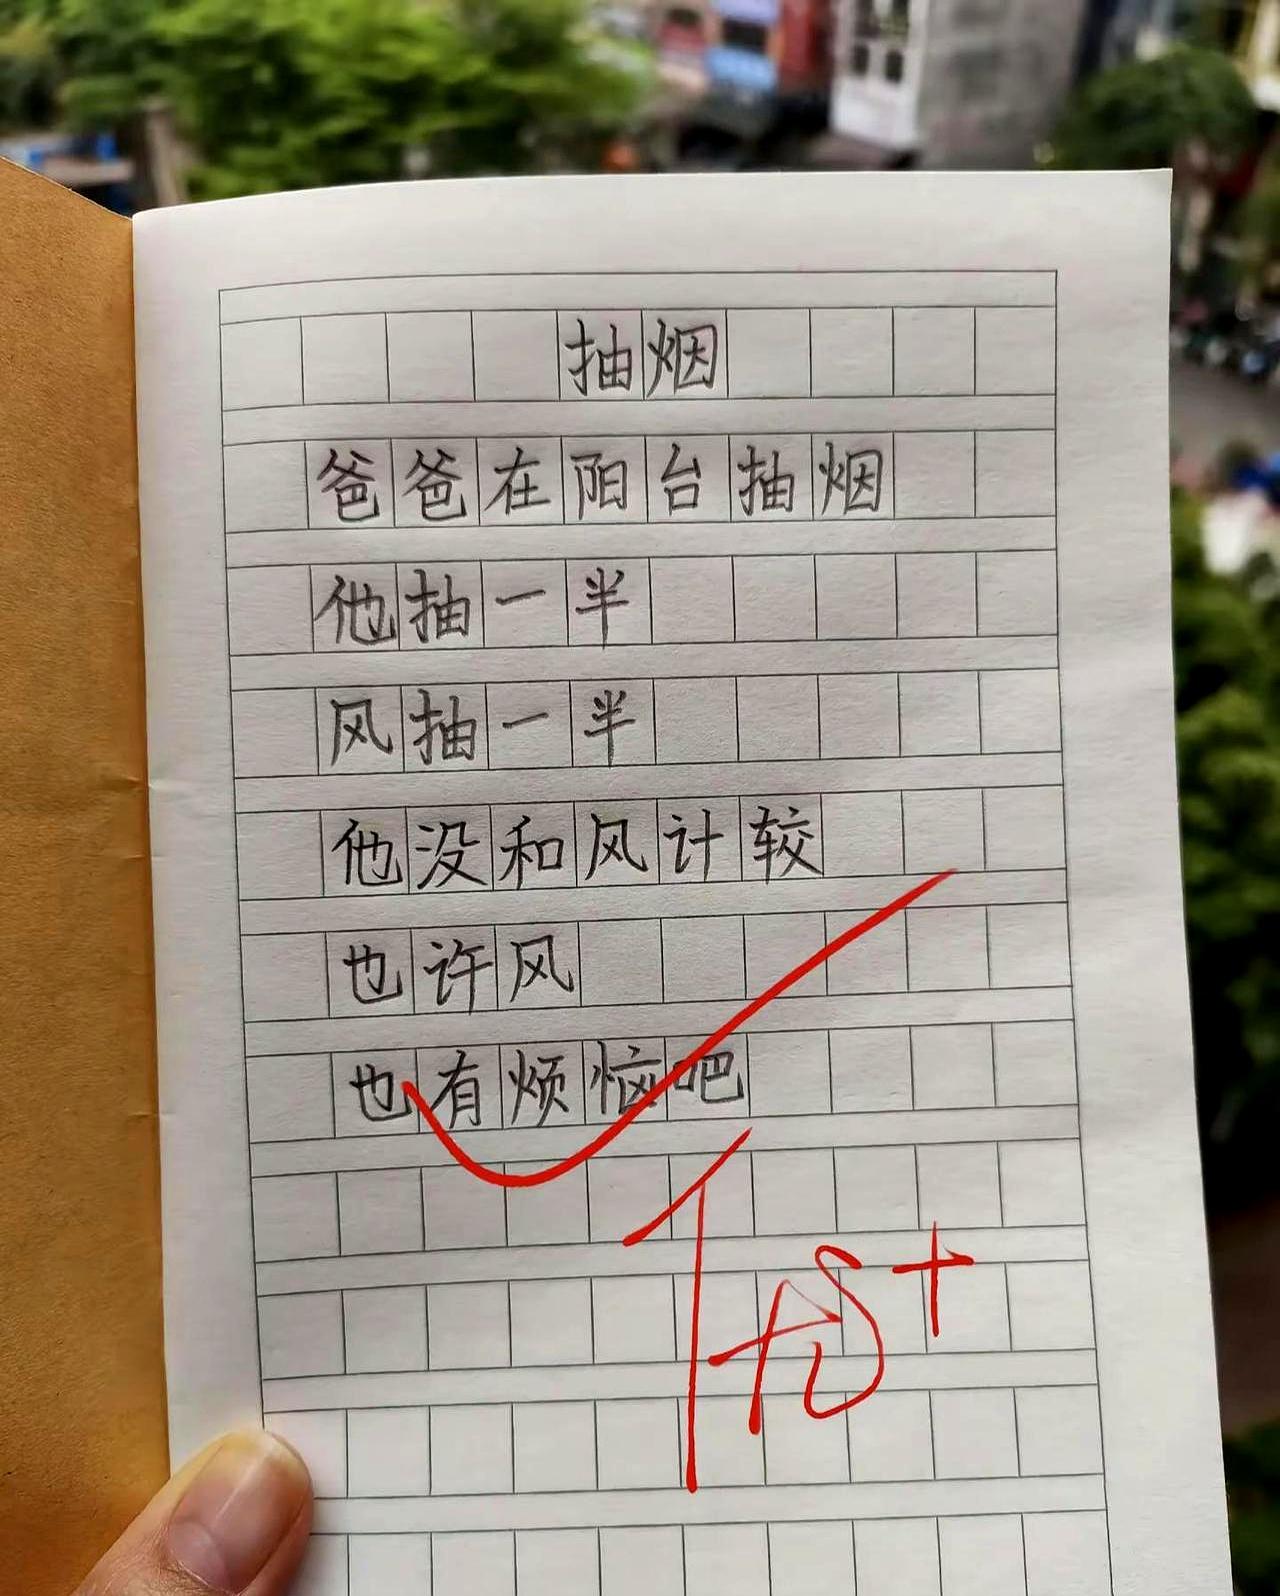 抽烟
爸爸在阳台抽烟
他抽一半
风抽一半
他没和风计较
也许风
也有烦恼吧
优+